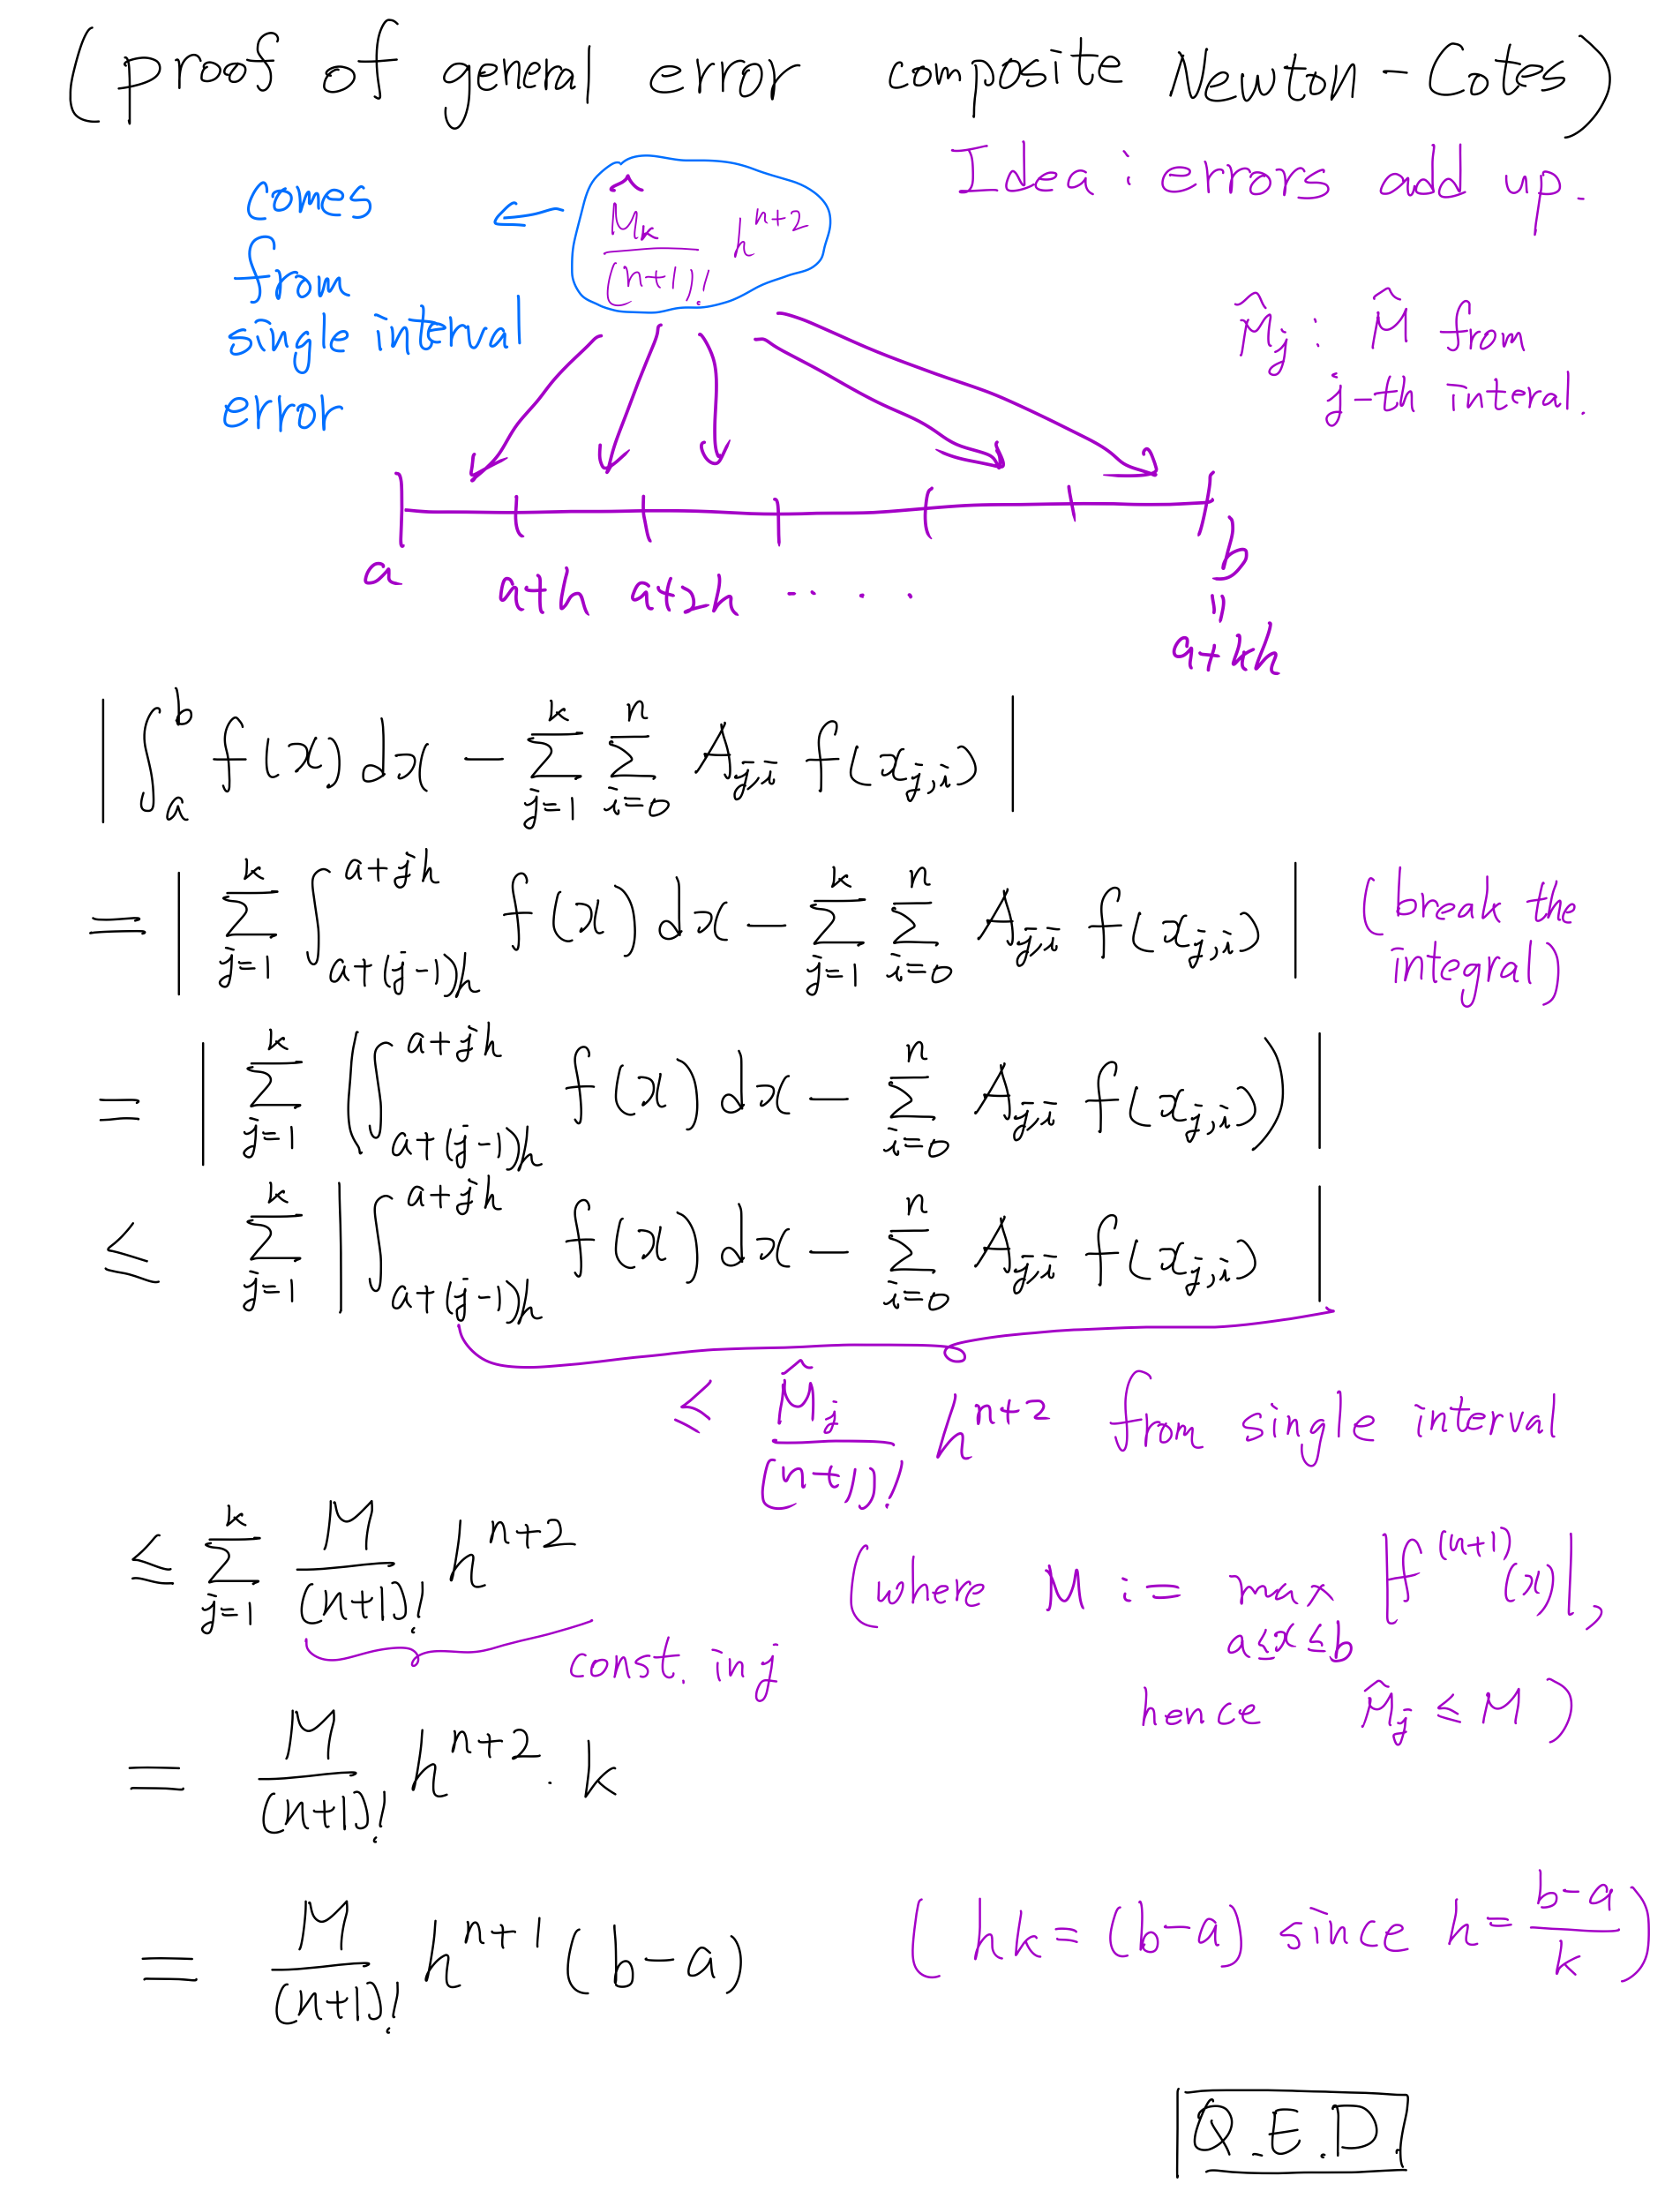 (proof of general error composite Newton-Cotes)
Idea: errors add up.
comes
from
single interval
error
← \frac{\hat{M}_k}{(n+1)!} h^{n+2}
\hat{M}_j : \hat{M} from
j-th interal.
a a+h a+2h ..... b
=
a+kh
| ∫_a^b f(x) dx - ∑_{j=1}^k ∑_{i=0}^n A_{j,i} f(x_{j,i}) |
= | ∑_{j=1}^k ∫_{a+(j-1)h}^{a+jh} f(x) dx - ∑_{j=1}^k ∑_{i=0}^n A_{j,i} f(x_{j,i}) | (break the
integral)
= | ∑_{j=1}^k ( ∫_{a+(j-1)h}^{a+jh} f(x) dx - ∑_{i=0}^n A_{j,i} f(x_{j,i}) ) |
≤ ∑_{j=1}^k | ∫_{a+(j-1)h}^{a+jh} f(x) dx - ∑_{i=0}^n A_{j,i} f(x_{j,i}) |
≤ \frac{\hat{M}_j}{(n+1)!} h^{n+2} from single interval
≤ ∑_{j=1}^k \frac{M}{(n+1)!} h^{n+2} (where M := max_{a≤x≤b} |f^{(n+1)}(x)|,
const. in j
hence \hat{M}_j ≤ M)
= \frac{M}{(n+1)!} h^{n+2} · k
= \frac{M}{(n+1)!} h^{n+1} (b-a) ( hk = (b-a) since h = \frac{b-a}{k} )
Q.E.D.